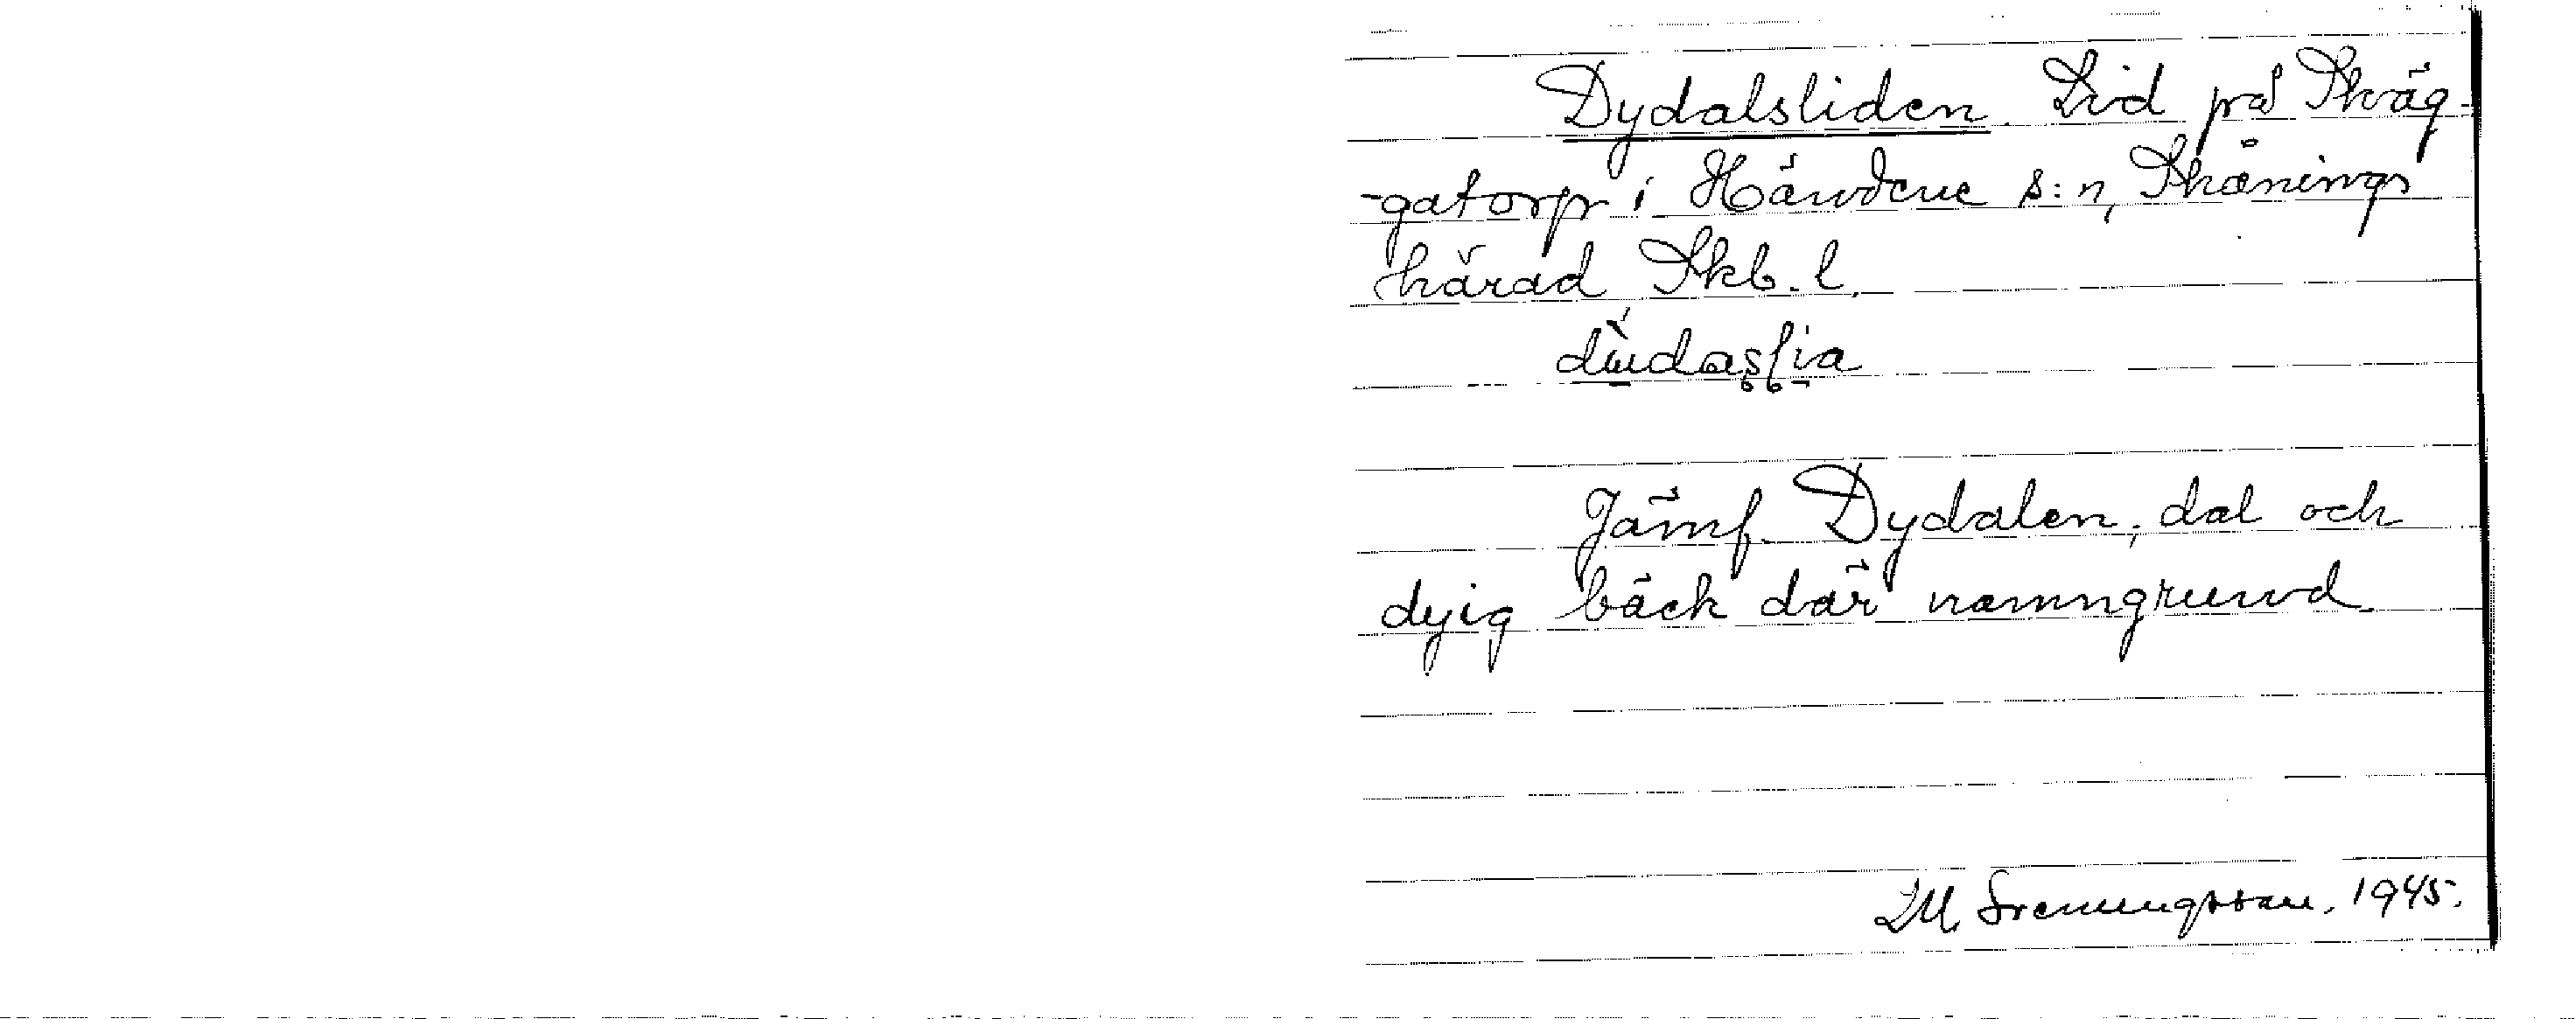 Dydalsliden. Lid på Skäg-
-gatorp i Händene s:n, Skånings
härad Skb. l.
Jämf. Dydalen, dal och
dyig bäck där namngrund
M. Svenungsson. 1945.